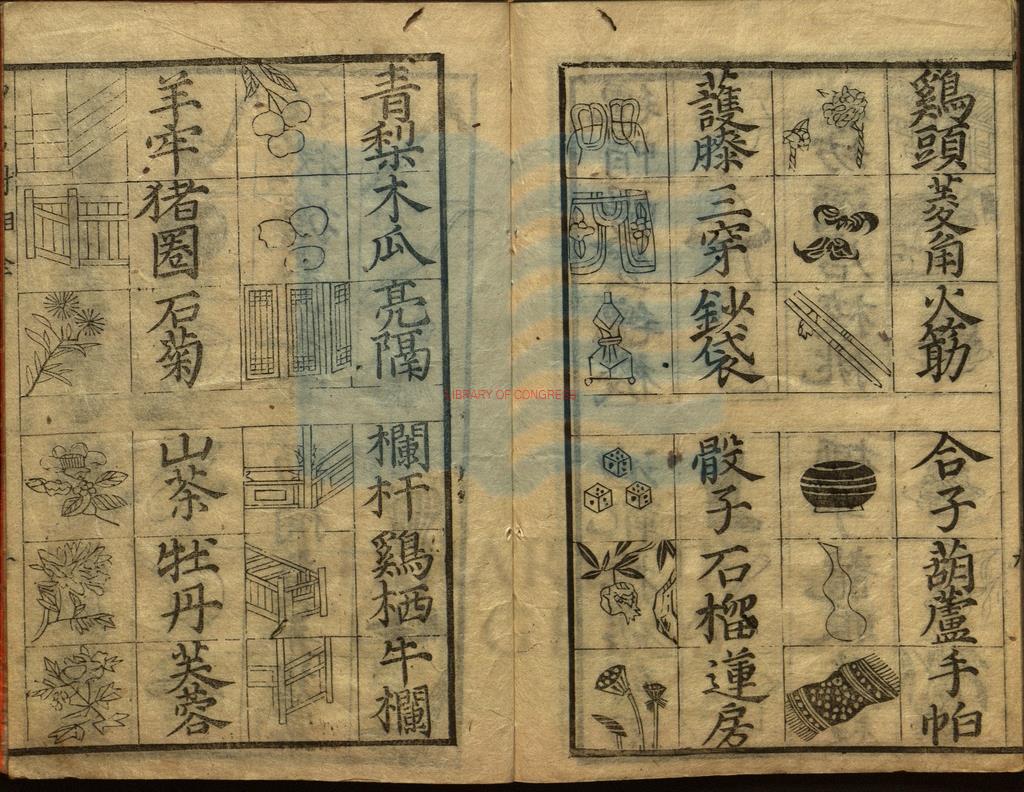 鷄頭 菱角 火筯
合子 葫蘆 手帕
護膝 三穿 鈔袋
骰子 石榴 蓮房
青梨 木瓜 亮隔
欄杆 鷄栖 牛欄
羊牢 猪圈 石菊
山茶 牡丹 芙蓉
LIBRARY OF CONGRESS